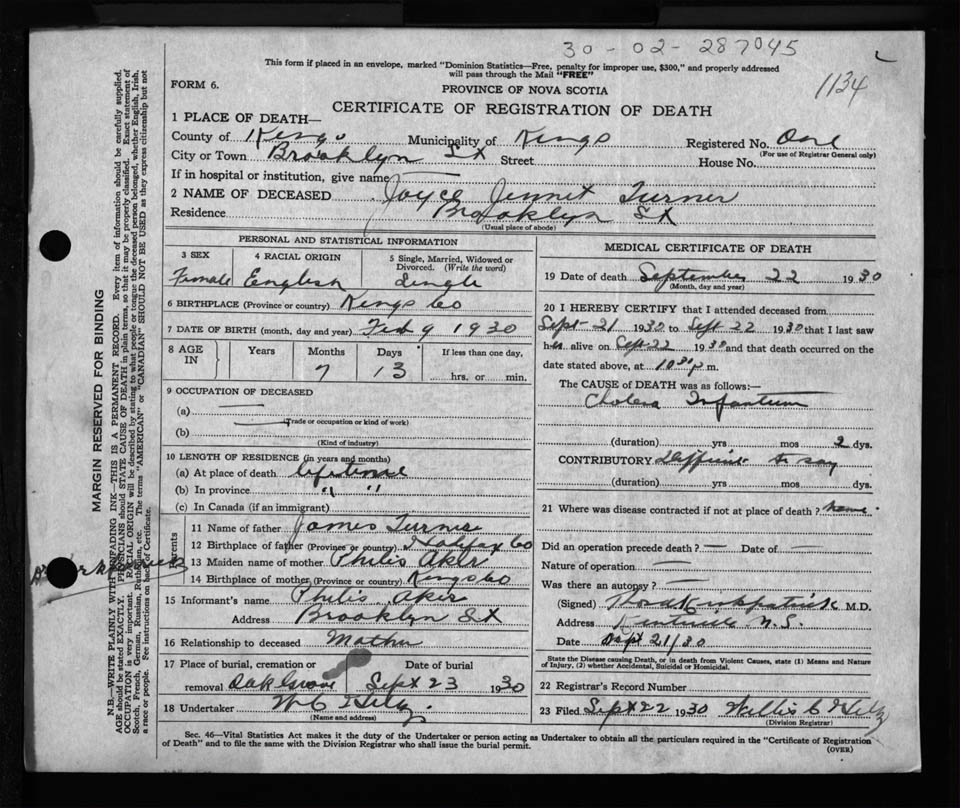 30-02-287045
This form if placed in an envelope, marked "Dominion Statistics—Free, penalty for improper use, $300," and properly addressed
will pass through the Mail "FREE"
1134
FORM 6.
PROVINCE OF NOVA SCOTIA
CERTIFICATE OF REGISTRATION OF DEATH
1 PLACE OF DEATH—
County of Kings Municipality of Kings Registered No. One
(For use of Registrar General only)
City or Town Brooklyn St Street House No.
If in hospital or institution, give name
2 NAME OF DECEASED Joyce Jennet Turner
Residence Brooklyn St
(Usual place of abode)
PERSONAL AND STATISTICAL INFORMATION
3 SEX 4 RACIAL ORIGIN 5 Single, Married, Widowed or
Divorced. (Write the word)
Female English Single
6 BIRTHPLACE (Province or country) Kings Co
7 DATE OF BIRTH (month, day and year) Feb 9 1930
8 AGE IN Years Months Days If less than one day,
7 13 hrs. or min.
9 OCCUPATION OF DECEASED
(a)
(Trade or occupation or kind of work)
(b)
(Kind of industry)
10 LENGTH OF RESIDENCE (in years and months)
(a) At place of death lifetime
(b) In province " "
(c) In Canada (if an immigrant)
Parents
11 Name of father James Turner
12 Birthplace of father (Province or country) Halifax Co
13 Maiden name of mother Philis Aker
14 Birthplace of mother (Province or country) Kings Co
15 Informant's name Philis Aker
Address Brooklyn St
16 Relationship to deceased Mother
17 Place of burial, cremation or Date of burial
removal Oak Grove Sept 23 1930
18 Undertaker W C Hiltz
(Name and address)
MEDICAL CERTIFICATE OF DEATH
19 Date of death September 22 1930
(Month, day and year)
20 I HEREBY CERTIFY that I attended deceased from
Sept-21 1930 to Sept 22 1930 that I last saw
her alive on Sept-22 1930 and that death occurred on the
date stated above, at 10 30 p m.
The CAUSE OF DEATH was as follows:
Cholera Infantum
(duration) yrs mos 2 dys.
CONTRIBUTORY to say
(duration) yrs mos dys.
21 Where was disease contracted if not at place of death? home
Did an operation precede death? — Date of —
Nature of operation —
Was there an autopsy? —
(Signed) Kirkpatrick M.D.
Address Kentville N.S.
Date Sept 21/30
State the Disease causing Death, or in death from Violent Causes, state (1) Means and Nature
of Injury, (2) whether Accidental, Suicidal or Homicidal.
22 Registrar's Record Number
23 Filed Sept 22 1930 Willis C Hiltz
(Division Registrar)
Sec. 46—Vital Statistics Act makes it the duty of the Undertaker or person acting as Undertaker to obtain all the particulars required in the "Certificate of Registration
of Death" and to file the same with the Division Registrar who shall issue the burial permit.
(OVER)
MARGIN RESERVED FOR BINDING
N.B.—WRITE PLAINLY WITH UNFADING INK—THIS IS A PERMANENT RECORD. Every item of information should be carefully supplied.
AGE should be stated EXACTLY. PHYSICIANS should STATE CAUSE OF DEATH in plain terms, so that it may be properly classified. Exact statement of
OCCUPATION is very important. RACIAL ORIGIN will be described by stating to what people or tongue the deceased person belonged, whether English, Irish,
Scotch, French, German, Russian, Ruthenian, etc. The terms "AMERICAN" or "CANADIAN" SHOULD NOT BE USED as they express citizenship but not
a race or people. See instructions on back of Certificate.